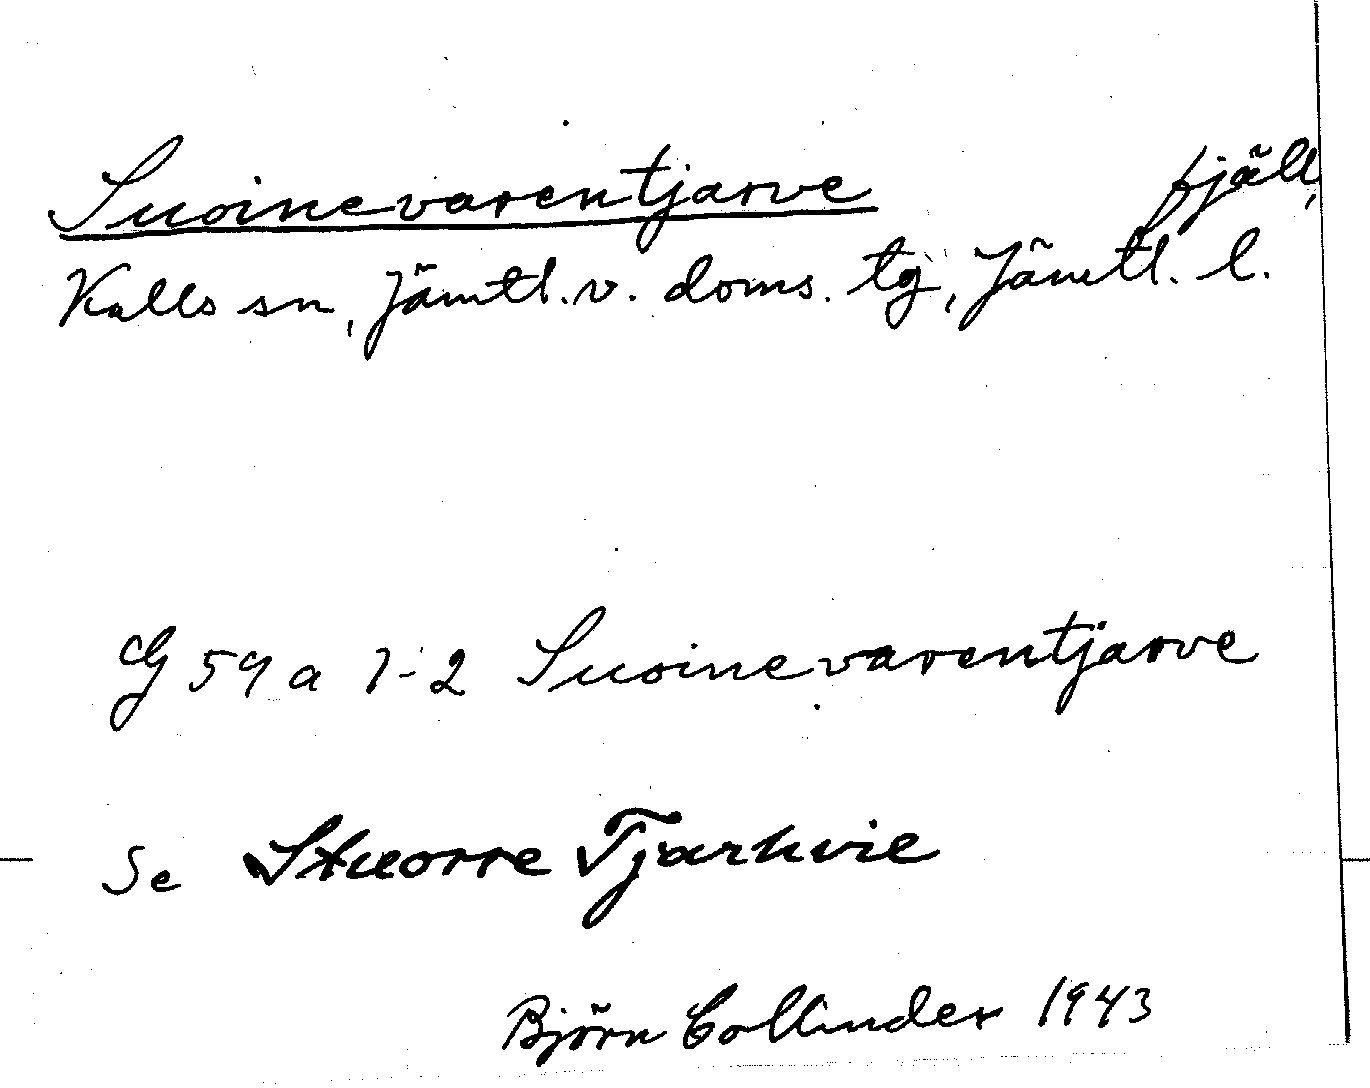 Suoinevarentjarve fjäll,
Kalls sn, Jämtl. v. doms. tg, Jämtl. l.
G 59 a 1-2 Suoinevarentjarve
Se Stuorre Tjarhvie
Björn Collinder 1943